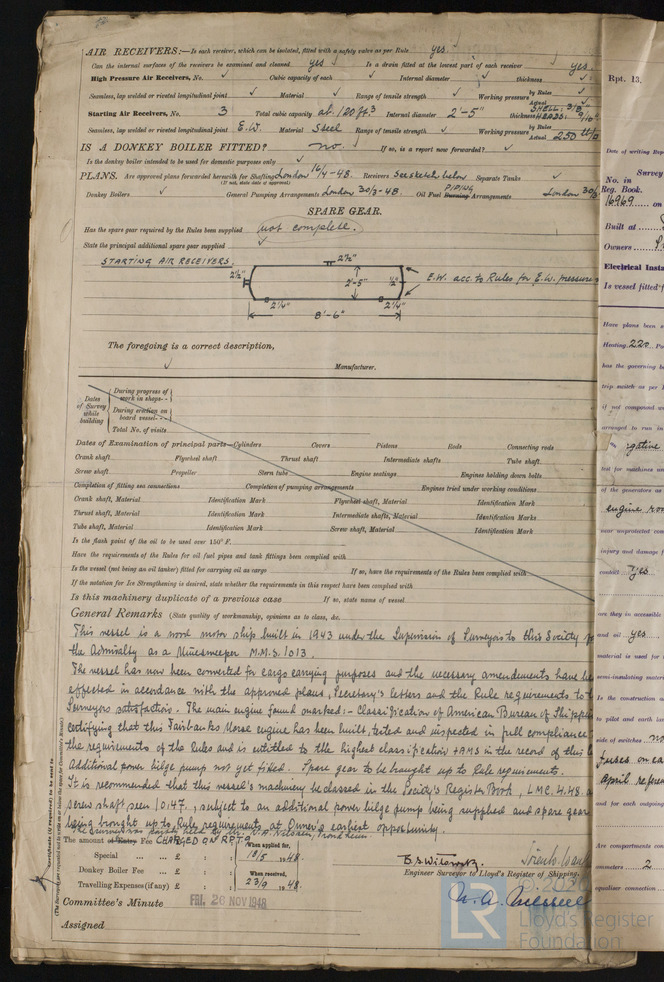 AIR RECEIVERS:— Is each receiver, which can be isolated, fitted with a safety valve as per Rule yes.
Can the internal surfaces of the receivers be examined and cleaned yes Is a drain fitted at the lowest part of each receiver yes.
High Pressure Air Receivers, No. ✓ Cubic capacity of each ✓ Internal diameter ✓ thickness ✓
Seamless, lap welded or riveted longitudinal joint ✓ Material ✓ Range of tensile strength ✓ Working pressure by Rules ✓ Actual
Starting Air Receivers, No. 3 Total cubic capacity ab. 120 ft.³ Internal diameter 2'-5" thickness SHELL: 3/8" HEADS: 9/16"
Seamless, lap welded or riveted longitudinal joint E.W. Material Steel Range of tensile strength ✓ Working pressure by Rules ✓ Actual 250
IS A DONKEY BOILER FITTED? no. If so, is a report now forwarded? ✓
Is the donkey boiler intended to be used for domestic purposes only ✓
PLANS. Are approved plans forwarded herewith for Shafting London 16/4-48. Receivers See sketch below Separate Tanks ✓
(If not, state date of approval)
Donkey Boilers ✓ General Pumping Arrangements London 30/3-48. Oil Fuel Burning PIPING Arrangements London 30/3
SPARE GEAR.
Has the spare gear required by the Rules been supplied not complete.
State the principal additional spare gear supplied ✓
STARTING AIR RECEIVERS.
2½"
2½"
2'-5"
½"
E.W. acc. to Rules for E.W. pressure
2¼"
2¼"
8'-6"
The foregoing is a correct description,
✓ Manufacturer.
Dates of Survey while building
During progress of work in shops--
During erection on board vessel---
Total No. of visits
Dates of Examination of principal parts—Cylinders Covers Pistons Rods Connecting rods
Crank shaft Flywheel shaft Thrust shaft Intermediate shafts Tube shaft
Screw shaft Propeller Stern tube Engine seatings Engines holding down bolts
Completion of fitting sea connections Completion of pumping arrangements Engines tried under working conditions
Crank shaft, Material Identification Mark Flywheel shaft, Material Identification Mark
Thrust shaft, Material Identification Mark Intermediate shafts, Material Identification Marks
Tube shaft, Material Identification Mark Screw shaft, Material Identification Mark
Is the flash point of the oil to be used over 150° F.
Have the requirements of the Rules for oil fuel pipes and tank fittings been complied with
Is the vessel (not being an oil tanker) fitted for carrying oil as cargo If so, have the requirements of the Rules been complied with
If the notation for Ice Strengthening is desired, state whether the requirements in this respect have been complied with
Is this machinery duplicate of a previous case If so, state name of vessel
General Remarks (State quality of workmanship, opinions as to class, &c.
This vessel is a wood motor ship built in 1943 under the Supervision of Surveyors to this Society
the Admiralty as a Minesweeper M.M.S. 1013.
The vessel has now been converted for cargo carrying purposes and the necessary amendments have
effected in accordance with the approved plans, Secretary's letters and the Rule requirements to
Surveyors satisfaction. The main engine found marked:- Classification of American Bureau of Shipping
certifying that this Fairbanks Morse engine has been built, tested and inspected in full compliance
the requirements of the Rules and is entitled to the highest classification ✠AMS in the record of this
Additional power bilge pump not yet fitted. Spare gear to be brought up to Rule requirements.
It is recommended that this vessel's machinery be classed in the Society's Register Book, LMC. 4.48.
screw shaft seen 10.47, subject to an additional power bilge pump being supplied and spare gear
being brought up to Rule requirements at Owner's earliest opportunity.
The amount of Entry Fee CHARGED ON RPT 9
Special £ : :
Donkey Boiler Fee £ : :
Travelling Expenses (if any) £ : :
When applied for,
18/5 1948.
When received,
23/9 1948.
Engineer Surveyor to Lloyd's Register of Shipping.
Committee's Minute FRI. 26 NOV 1948
Assigned
Certificate (if required) to be sent to
(The Surveyors are requested not to write on or below the space for Committee's Minute.)
Rpt. 13.
Date of writing Rep
Survey
No. in
Reg. Book.
16969 on
Built at
Owners
Electrical Insta
Is vessel fitted f
Have plans been
Heating 220
has the governing
trip switch as per
if not compound
arranged to run in
test for machines
of the generators
engine
injury and damage
contact yes
are they in accessible
and oil yes
material is used for
semi-insulating materi
Is the construction
to pilot and earth
side of switches no
fuses on ea
April referen
and for each outgoing
Are compartments
ammeters 2
equaliser connection
LR
© 2020
Lloyd's Register
Foundation